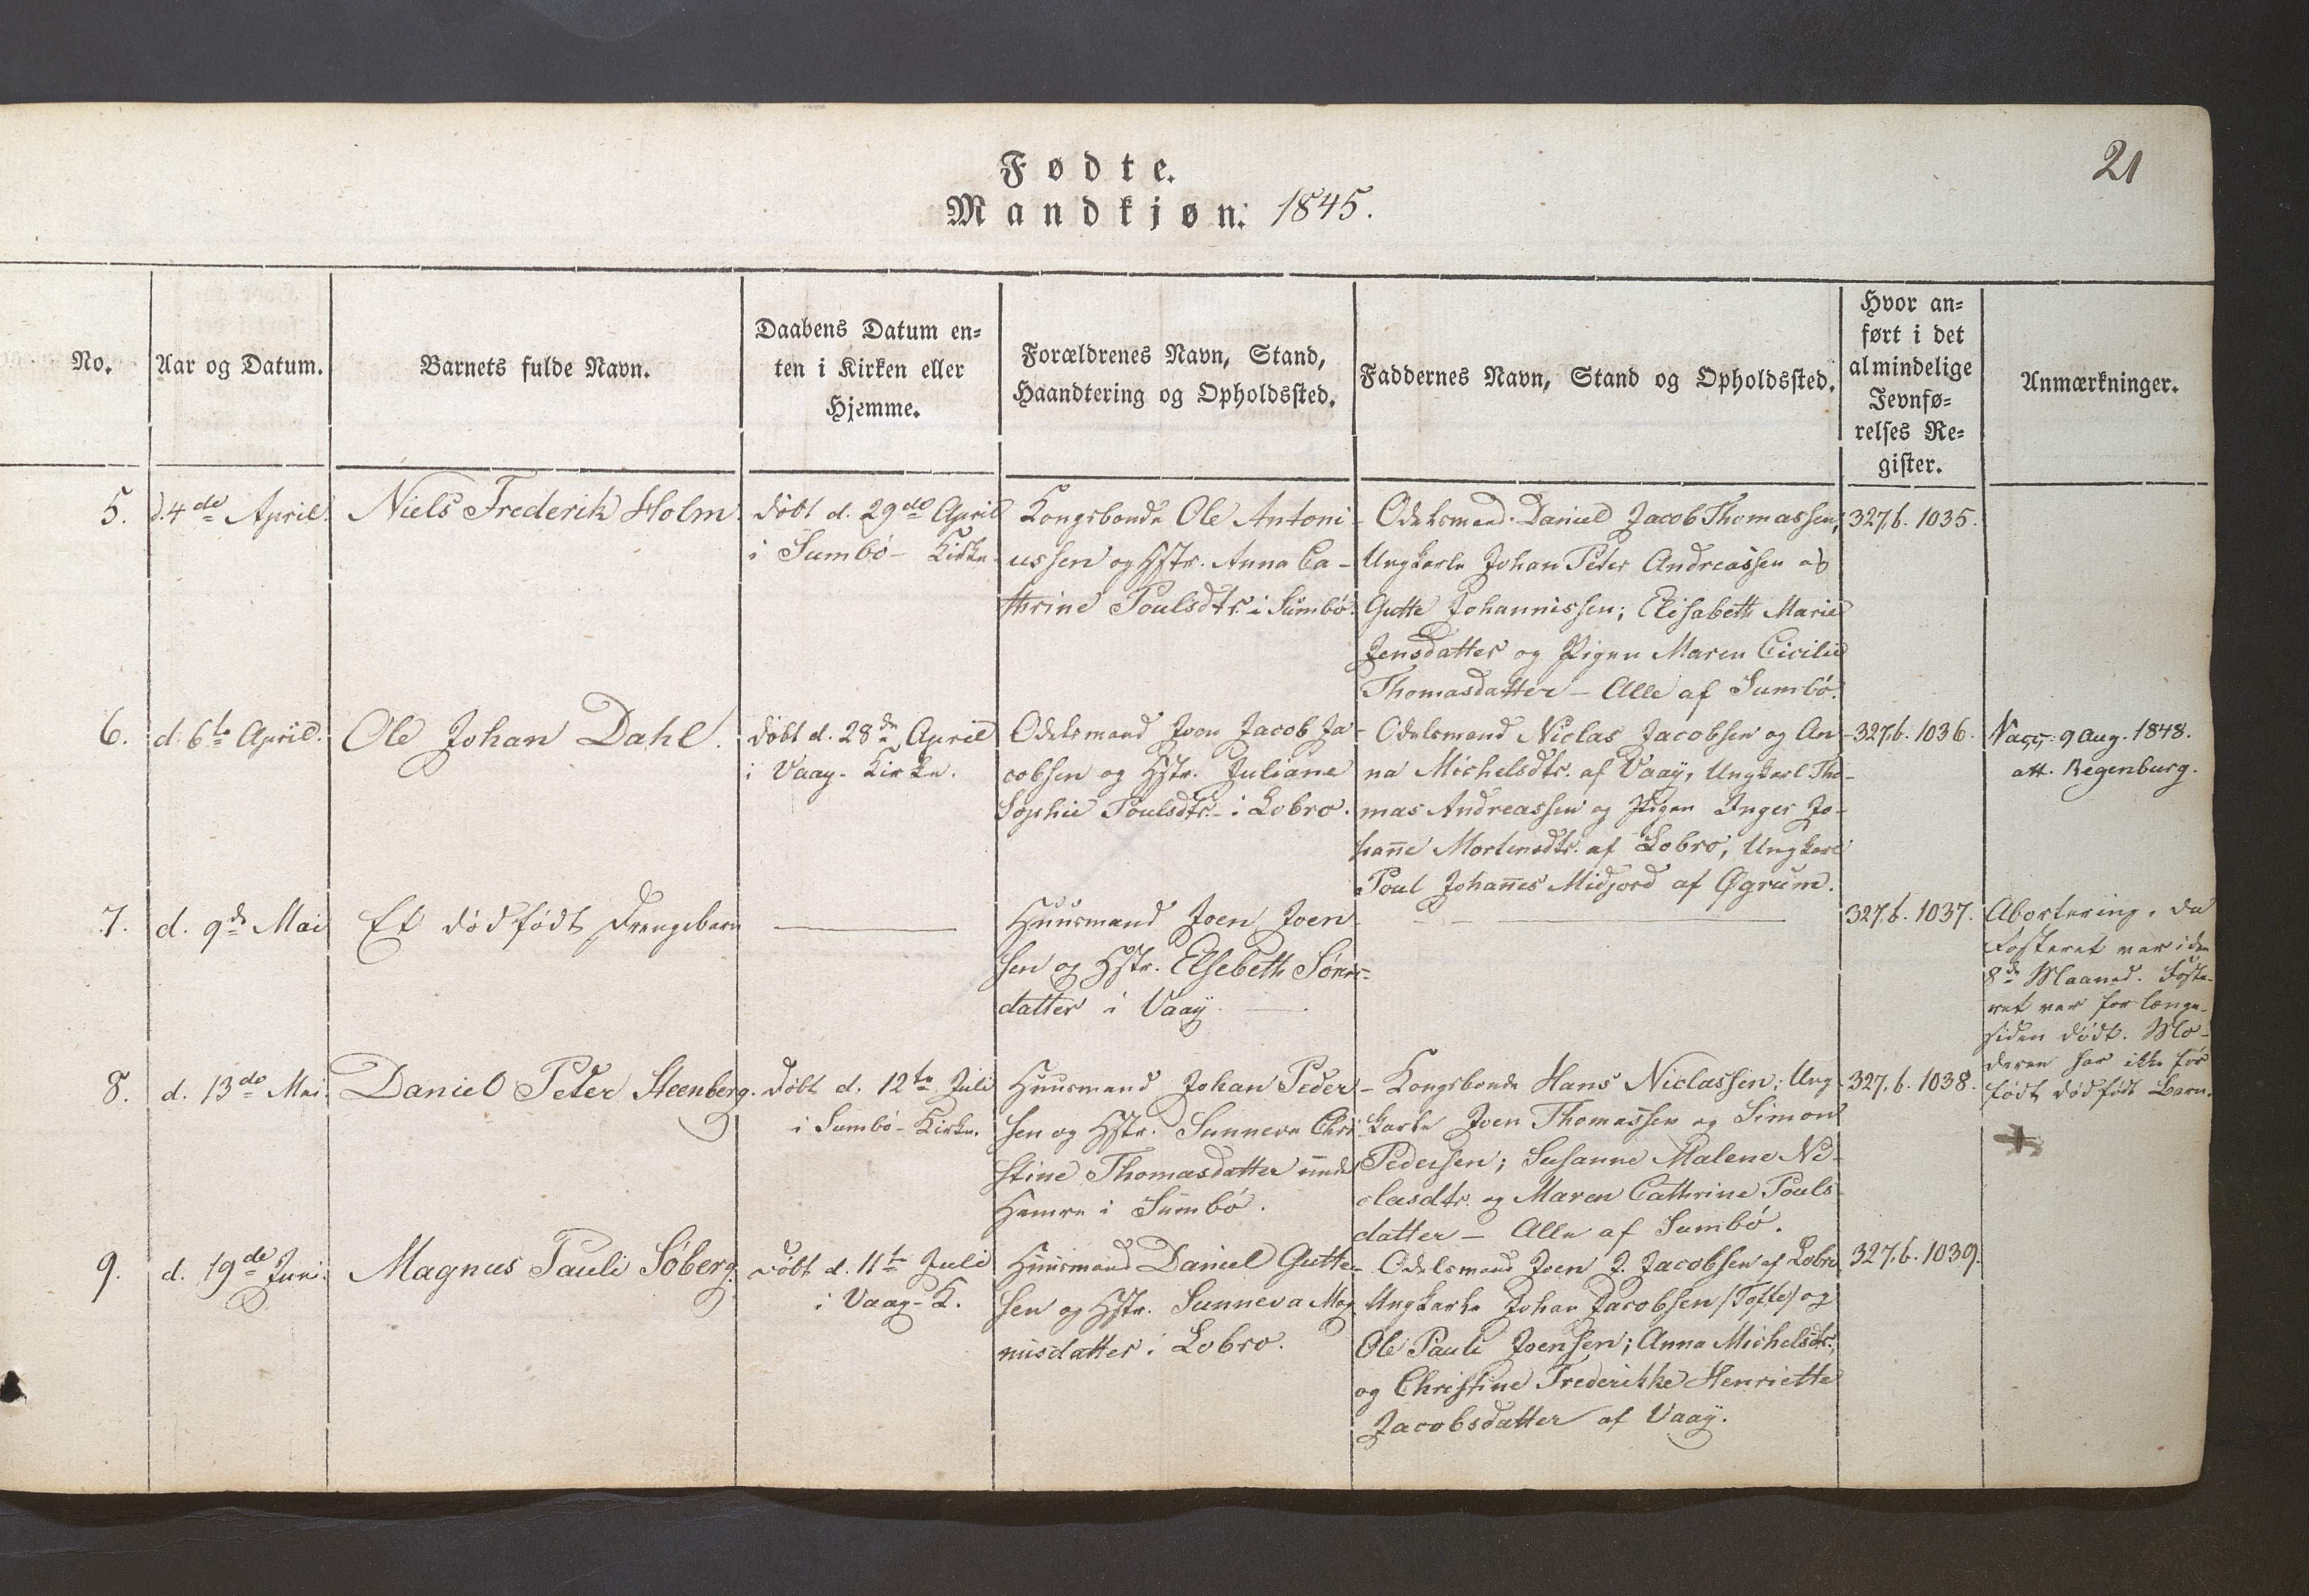 Fødte.
Mandkjøn. 1845.
21
No.
Aar og Datum.
Barnets fulde Navn.
Daabens Datum en=
ten i Kirken eller
Hjemme.
Forældrenes Navn, Stand,
Haandtering og Opholdssted.
Faddernes Navn, Stand og Opholdssted.
Hvor an=
ført i det
almindelige
Jevnfø=
relses Re=
gister.
Anmærkninger.
5.
d. 4de April.
Niels Frederik Holm.
døbt d. 29de April
i Sumbø-Kirke.
Kongsbonde Ole Antoni-
ussen og Hstr. Anna Ca-
thrine Poulsdtr. i Sumbø.
Odelsmand Daniel Jacob Thomassen,
Ungkarle Johan Peter Andreassen og
Gutte Johannissen; Elisabeth Marie
Jensdatter og Pigen Maren Cicilie
Thomasdatter - Alle af Sumbø.
327.b. 1035.
6.
d. 6te April.
Ole Johan Dahl.
døbt d. 28de April
i Vaag-Kirke.
Odelsmand Joen Jacob Ja-
cobsen og Hstr. Juliane
Sophie Poulsdtr. i Lobro.
Odelsmand Niclas Jacobsen og An-
na Michelsdtr. af Vaag, Ungkarl Tho-
mas Andreassen og Pigen Inger Jo-
hanne Mortensdtr. af Lobro, Ungkarl
Poul Johannes Midjord af Øgrum.
327.b. 1036.
Vacc: 9 Aug. 1848.
att. Regenburg.
7.
d. 9de Mai
Et dødfødt Drengebarn
Huusmand Joen Joen-
sen og Hstr. Elsebeth Søns-
datter i Vaag.
327.b. 1037.
Abortering, da
Fosteret var i den
8de Maaned. Foste-
ret var for længe-
siden dødt. Mo-
deren har ikke før
født dødfødt Barn.
8.
d. 13de Mai.
Daniel Peter Steenberg.
Døbt d. 12te Juli
i Sumbø-Kirke.
Huusmand Johan Peder-
sen og Hstr. Sunneva Chri-
stine Thomasdatter under
Hamre i Sumbø.
Kongsbonde Hans Niclassen; Ung-
karle Joen Thomassen og Simon
Pedersen; Susanne Malene Ni-
clasdtr. og Maren Cathrine Pouls-
datter - Alle af Sumbø.
327.b. 1038.
9.
d. 19de Juni.
Magnus Pauli Søberg.
Døbt d. 11te Juli
i Vaag-K.
Huusmand Daniel Gutte-
sen og Hstr. Sunneva Mag-
nusdatter i Lobro.
Odelsmand Joen J. Jacobsen af Lobro
Ungkarle Johan Jacobsen /Tofte/ og
Ole Pauli Joensen; Anna Michelsdtr.
og Christine Frederikke Henriette
Jacobsdatter af Vaag.
327.b. 1039.